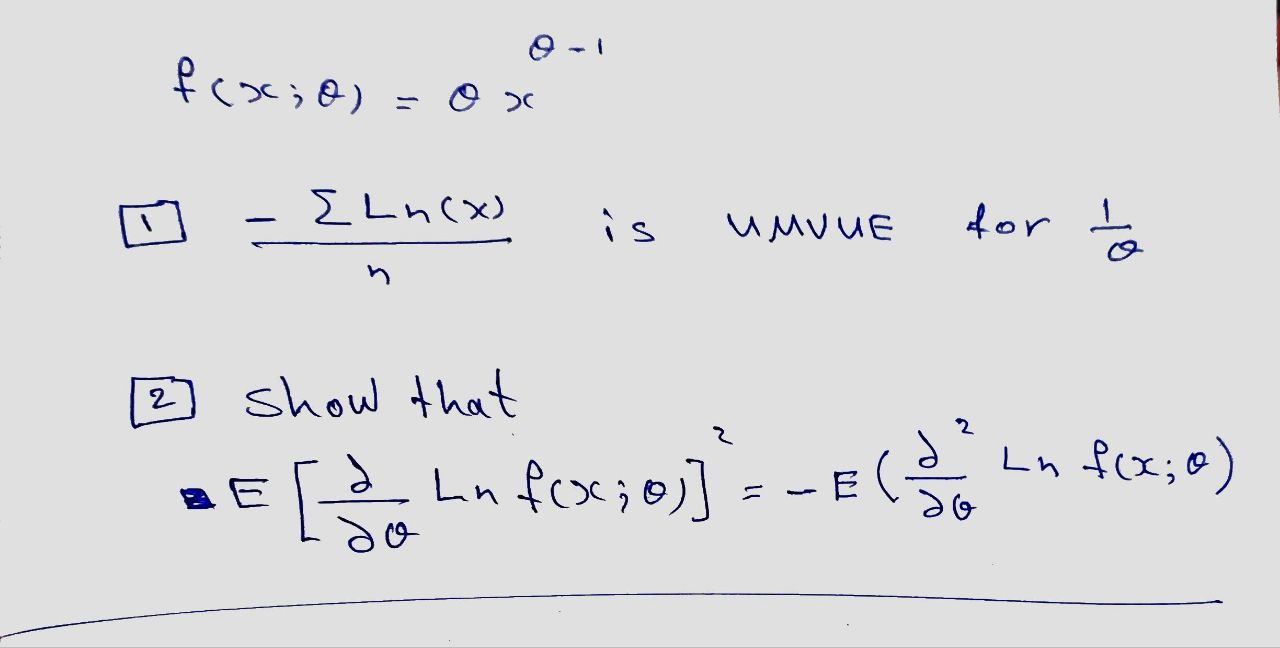 f(x;θ) = θ x^{θ-1}
1 - Σ Ln(x) / n is UMVUE for 1/θ
2 show that
E [∂/∂θ Ln f(x;θ)]^2 = - E (∂^2/∂θ Ln f(x;θ))